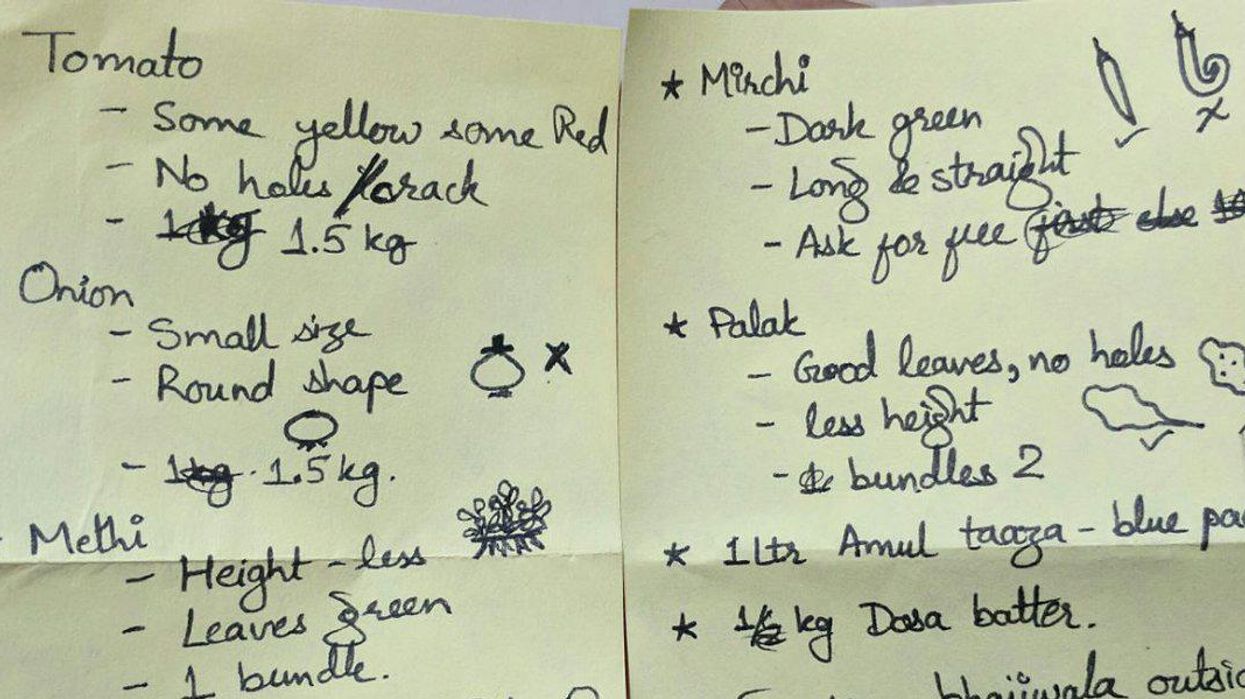 Tomato
- Some yellow some Red
- No holes / crack
- 1.5 kg
Onion
- Small size
- Round shape
- 1.5 kg.
Methi
- Height - less
- Leaves green
- 1 bundle.
* Mirchi
- Dark green
- Long & straight
- Ask for free
* Palak
- Good leaves, no holes
- less height
- bundles 2
* 1 Ltr Amul taaza - blue
* kg Dosa batter.
bhajiwala